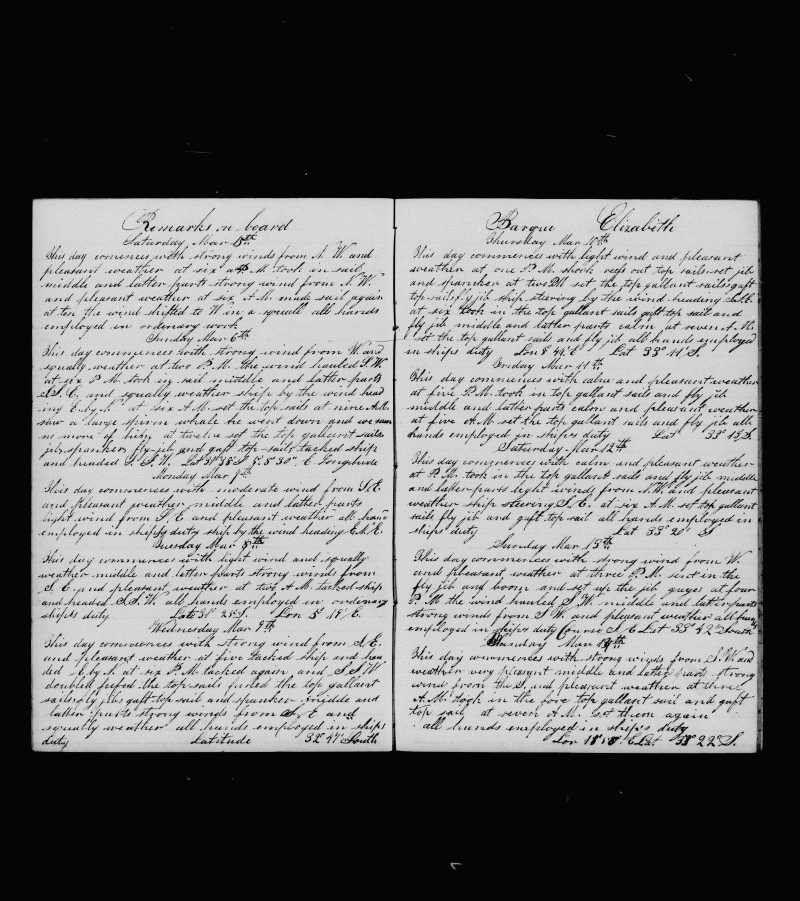 Remarks on board
Saturday Mar 5th
This day comences with strong winds from N. W. and
pleasant weather at six P. M. took in sail
middle and latter parts strong wind from N. W.
and pleasant weather at six A. M. made sail again
at ten the wind shifted to W in a squall all hands
employed in ordinary work
Sunday Mar 6th
This day commences with strong wind from W. and
squally weather at two P. M. the wind hauled S. W.
at six P. M. took in sail middle and latter parts
S. E. and squally weather ship by the wind head
ing E. by N. at six A. M. set the top sails at nine A. M.
saw a large spirm whale he went down and we saw
no more of him at twelve set the top gallant sails
jib spanker fly-jib and gaff top-sails tacked ship
and headed S. S. W. Lat 31° 38 S 5° 30 E Longitude
Monday Mar 7th
This day commences with moderate wind from S. E
and pleasant weather middle and latter parts
light wind from S. E and pleasant weather all hand
employed in ships duty ship by the wind heading E. N. E.
Tuesday Mar 8th
This day commences with light wind and squally
weather middle and latter parts strong winds from
S. E. and pleasant weather at two A. M. tacked ship
and headed S. S. W. all hands employed in ordinary
ships duty Lat 31° 25 S. Lon 5° 14 E.
Wednesday Mar 9th
This day commences with strong wind from S. E.
and pleasant weather at five tacked ship and hea
ded E by N. at six P. M. tacked again and S S W.
doubled reefed the top-sails furled the top gallant
sails fly jibs gaft top sail and spanker middle and
latter parts strong winds from S. E and
squally weather all hands employed in ships
duty Latitude 32° 47 South
Barque Elizabeth
Thursday Mar 10th
This day commences with light wind and pleasant
weather at one P. M. shook reefs out top sails set jib
and spancker at two PM set the top gallant sails gaft
top-sails fly jib ship steering by the wind heading
at six took in the top gallant sails gaft top sail and
fly jib middle and latter parts calm at seven A. M.
set the top gallant sails and fly jib all hands employed
in ships duty Lon 8° 46 E Lat 33° 11 S.
Friday Mar 11th
This day commences with calm and pleasant weather
at five P. M. took in top gallant sails and fly jib
middle and latter parts calm and pleasant weather
at five A. M set the top gallant sails and fly jib all
hands employed in ships duty Lat 33° 15 S.
Saturday Mar 12th
This day commences with calm and pleasant weather
at P. M. took in the top gallant sails and fly jib middle
and latter parts light winds from N. W. and pleasant
weather ship steering S. E. at six A. M set top gallant
sails fly jib and gaft top sail all hands employed in
ships duty Lat 33° 20 S
Sunday Mar 13th
This day commences with strong wind from W.
and pleasant weather at three P. M. sent in the
fly jib boom and set up the jib guyes at four
P. M the wind hauled S. W. middle and latter parts
strong winds from S W. and pleasant weather all hands
employed in ships duty Course S. E Lat 33° 42 South
Monday Mar 14th
This day commences with strong winds from S. W. and
weather very pleasant middle and latter parts strong
wind from the S. and pleasant weather at three
A. M. took in the fore top gallant sail and gaft
top sail at seven A. M. set them again
all hands employed in ships duty
Lat 33° 22 S.